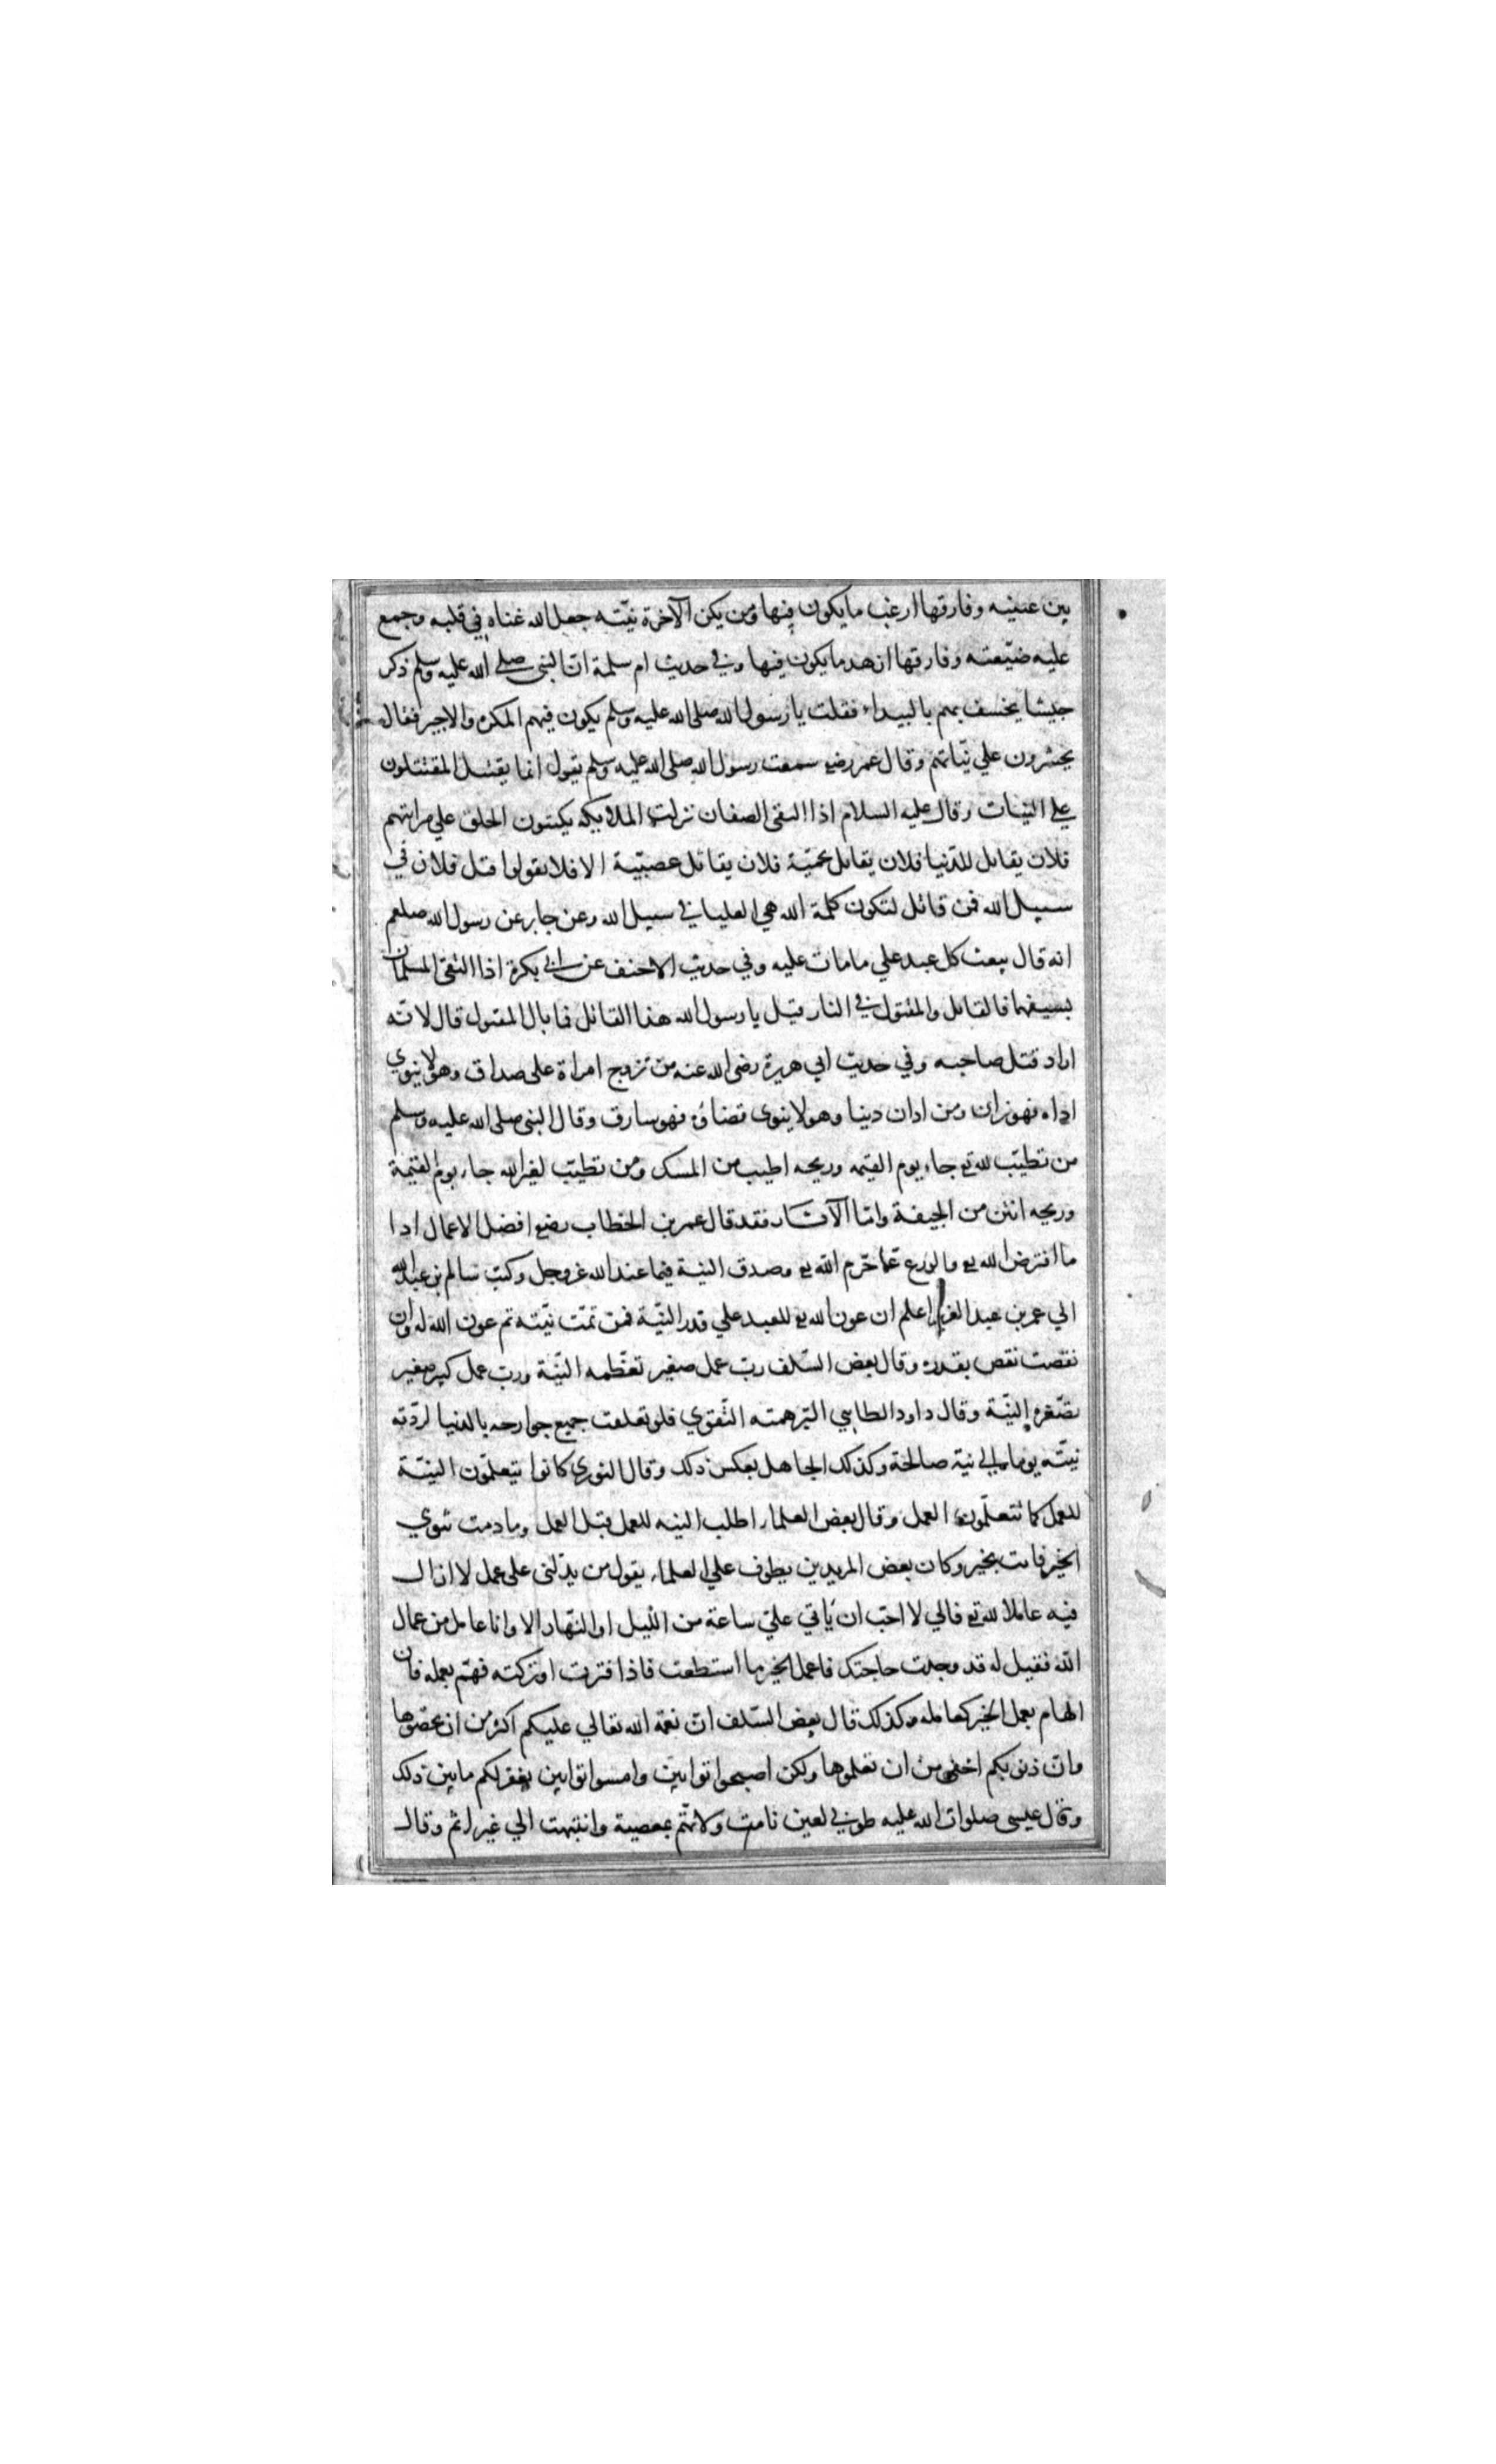 بين عينيه وفارقها ارغب ما يكون فيها ومن يكن الآخرة نيّته جعل الله غناه في قلبه وجمع
عليه ضيعته وفارقها ازهد ما يكون فيها وفي حديث ام سلمة انّ النبى صلى الله عليه وسلم ذكر
جيشا يخسف بهم بالبيداء فقلت يا رسول الله صلى الله عليه وسلم يكون فيهم المكره والاجير فقال
يحشرون علي نيّاتهم وقال عمر رضي سمعت رسول الله صلى الله عليه وسلم يقول انما يقتتل المقتتلون
علي النيات وقال عليه السلام اذا التقى الصفان نزلت الملايكه يكتبون الخلق علي مراتبهم
فلان يقاتل للدّنيا فلان يقاتل حميّة فلان يقاتل عصبيّة الا فلا تقولوا قتل فلان في
سبيل الله فمن قاتل لتكون كلمة الله هي العليا في سبيل الله وعن جابر عن رسول الله صلعم
انه قال يبعث كل عبد علي ما مات عليه وفي حديث الاحنف عن ابي بكرة اذا التقى المسلمان
بسيفهما فالقاتل والمقتول في النار قيل يا رسول الله هذا القاتل فما بال المقتول قال لانّه
اراد قتل صاحبه وفي حديث ابي هريرة رضى الله عنه من تزوج امراة على صداق وهو لا ينوي
اداه فهو زان ومن ادان دينا وهو لا ينوى قضاؤه فهو سارق وقال النبى صلى الله عليه وسلم
من تطيّب لله تع جاء يوم القيمه وريحه اطيب من المسك ومن تطيّب لغير الله جاء يوم القيمة
وريحه انتن من الجيفة وامّا الآثار فقد قال عمر بن الخطاب رضع افضل الاعمال ادا
ما افترض الله تع والورع عمّا حّرم الله تع وصدق النية فيما عند الله عز وجل وكتب سالم بن عبد الله
الي عمر بن عبد العزيز اعلم ان عون الله تع للعبد علي قدر النيّة فمن تمّت نيّته تم عون الله له وان
نقصت نقص بقدره وقال بعض السّلف ربّ عمل صغير تعظّمه النيّة وربّ عمل كبير صغير
تصّغره النيّة وقال داود الطايي البّر همته التّقوي فلو تعلقت جميع جوارحه بالدنيا لردّته
نيّته يوما الي نية صالحة وكذلك الجاهل بعكس ذلك وقال الثوري كانوا يتعلّمون النيّة
للعمل كما تتعلّمون العمل وقال بعض العلماء اطلب النيه للعمل قبل العمل وما دمت تنوي
الخير فانت بخير وكان بعض المريدين يطوف علي العلماء يقول من يدّلنى على عمل لا ازال
فيه عاملا لله تع فاني لا احبّ ان يأتي عليّ ساعة من اللّيل او النّهار الا وانا عامل من عمال
الله فقيل له قد وجدت حاجتك فاعمل الخير ما استطعت فاذا فترت او تركته فهمّ بعمله فان
الهام بعمل الخير كعامله وكذلك قال بعض السّلف انّ نعمة الله تعالي عليكم اكثر من ان تحصوها
وان ذنوبكم اخفى من ان تعلموها ولكن اصبحوا توابين وامسوا توابين يغفر لكم ما بين ذلك
وقال عيسى صلوات الله عليه طوبي لعين نامت ولا تهّم بمعصية وانتبهت الي غير اثم وقال